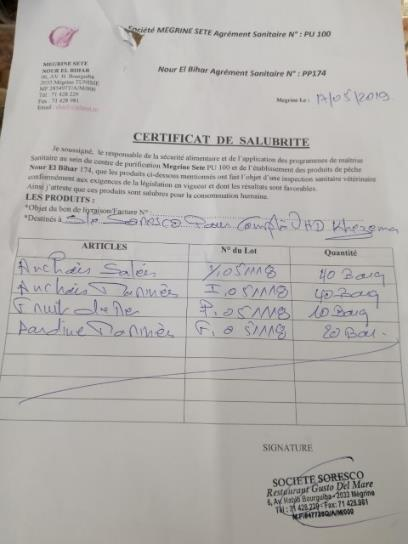 Société MEGRINE SETE Agrément Sanitaire N° : PU 100
Nour El Bihar Agrément Sanitaire N° : PP174
MEGRINE SETE
NOUR EL BIHAR
2033 Mégrine TUNISIE
Tél : 71 428 229
Fax : 71 428 981
Megrine Le : 17/05/2019
CERTIFICAT DE SALUBRITE
Je soussigné, le responsable de la sécurité alimentaire et de l'application des programmes de maîtrise
Sanitaire au sein du centre de purification Megrine Sete PU 100 et de l'établissement des produits de pêche
Nour El Bihar 174, que les produits ci-dessous mentionnés ont fait l'objet d'une inspection sanitaire vétérinaire
conformément aux exigences de la législation en vigueur et dont les résultats sont favorables.
Ainsi j'atteste que ces produits sont salubres pour la consommation humaine.
LES PRODUITS :
*Objet du bon de livraison/Facture N°
*Destinés à Sté Soresco Pour Compte HD
ARTICLES N° du Lot Quantité
Anchois Salés 05/118 40 Barq
Anchois Marinés I.05/118 40 Barq
Fruit de Mer P.05/118 10 Barq
Sardine Marinées F.05/118 20 Bar
SIGNATURE
SOCIETE SORESCO
Restaurant Gusto Del Mare
6, Av. Habib Bourguiba - 2033 Mégrine
Tél : 71 428 229 - Fax : 71 428 981